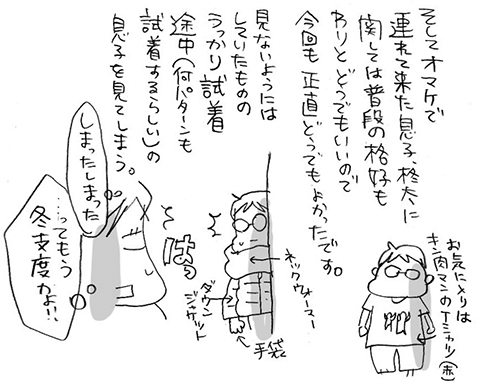 そしてオマケで
連れて来た息子、柊太に
関しては普段の格好も
わりとどうでもいいので
今回も正直どうでもよかったです。
お気に入りは
キン肉マンのTシャツ(赤)
見ないようには
していたものの
うっかり試着
途中(何パターンも
試着するらしい)の
息子を見てしまう。
ネックウォーマー
ダウン
ジャケット
手袋
はっ
しまったしまった
…ってもう
冬支度かよ!!